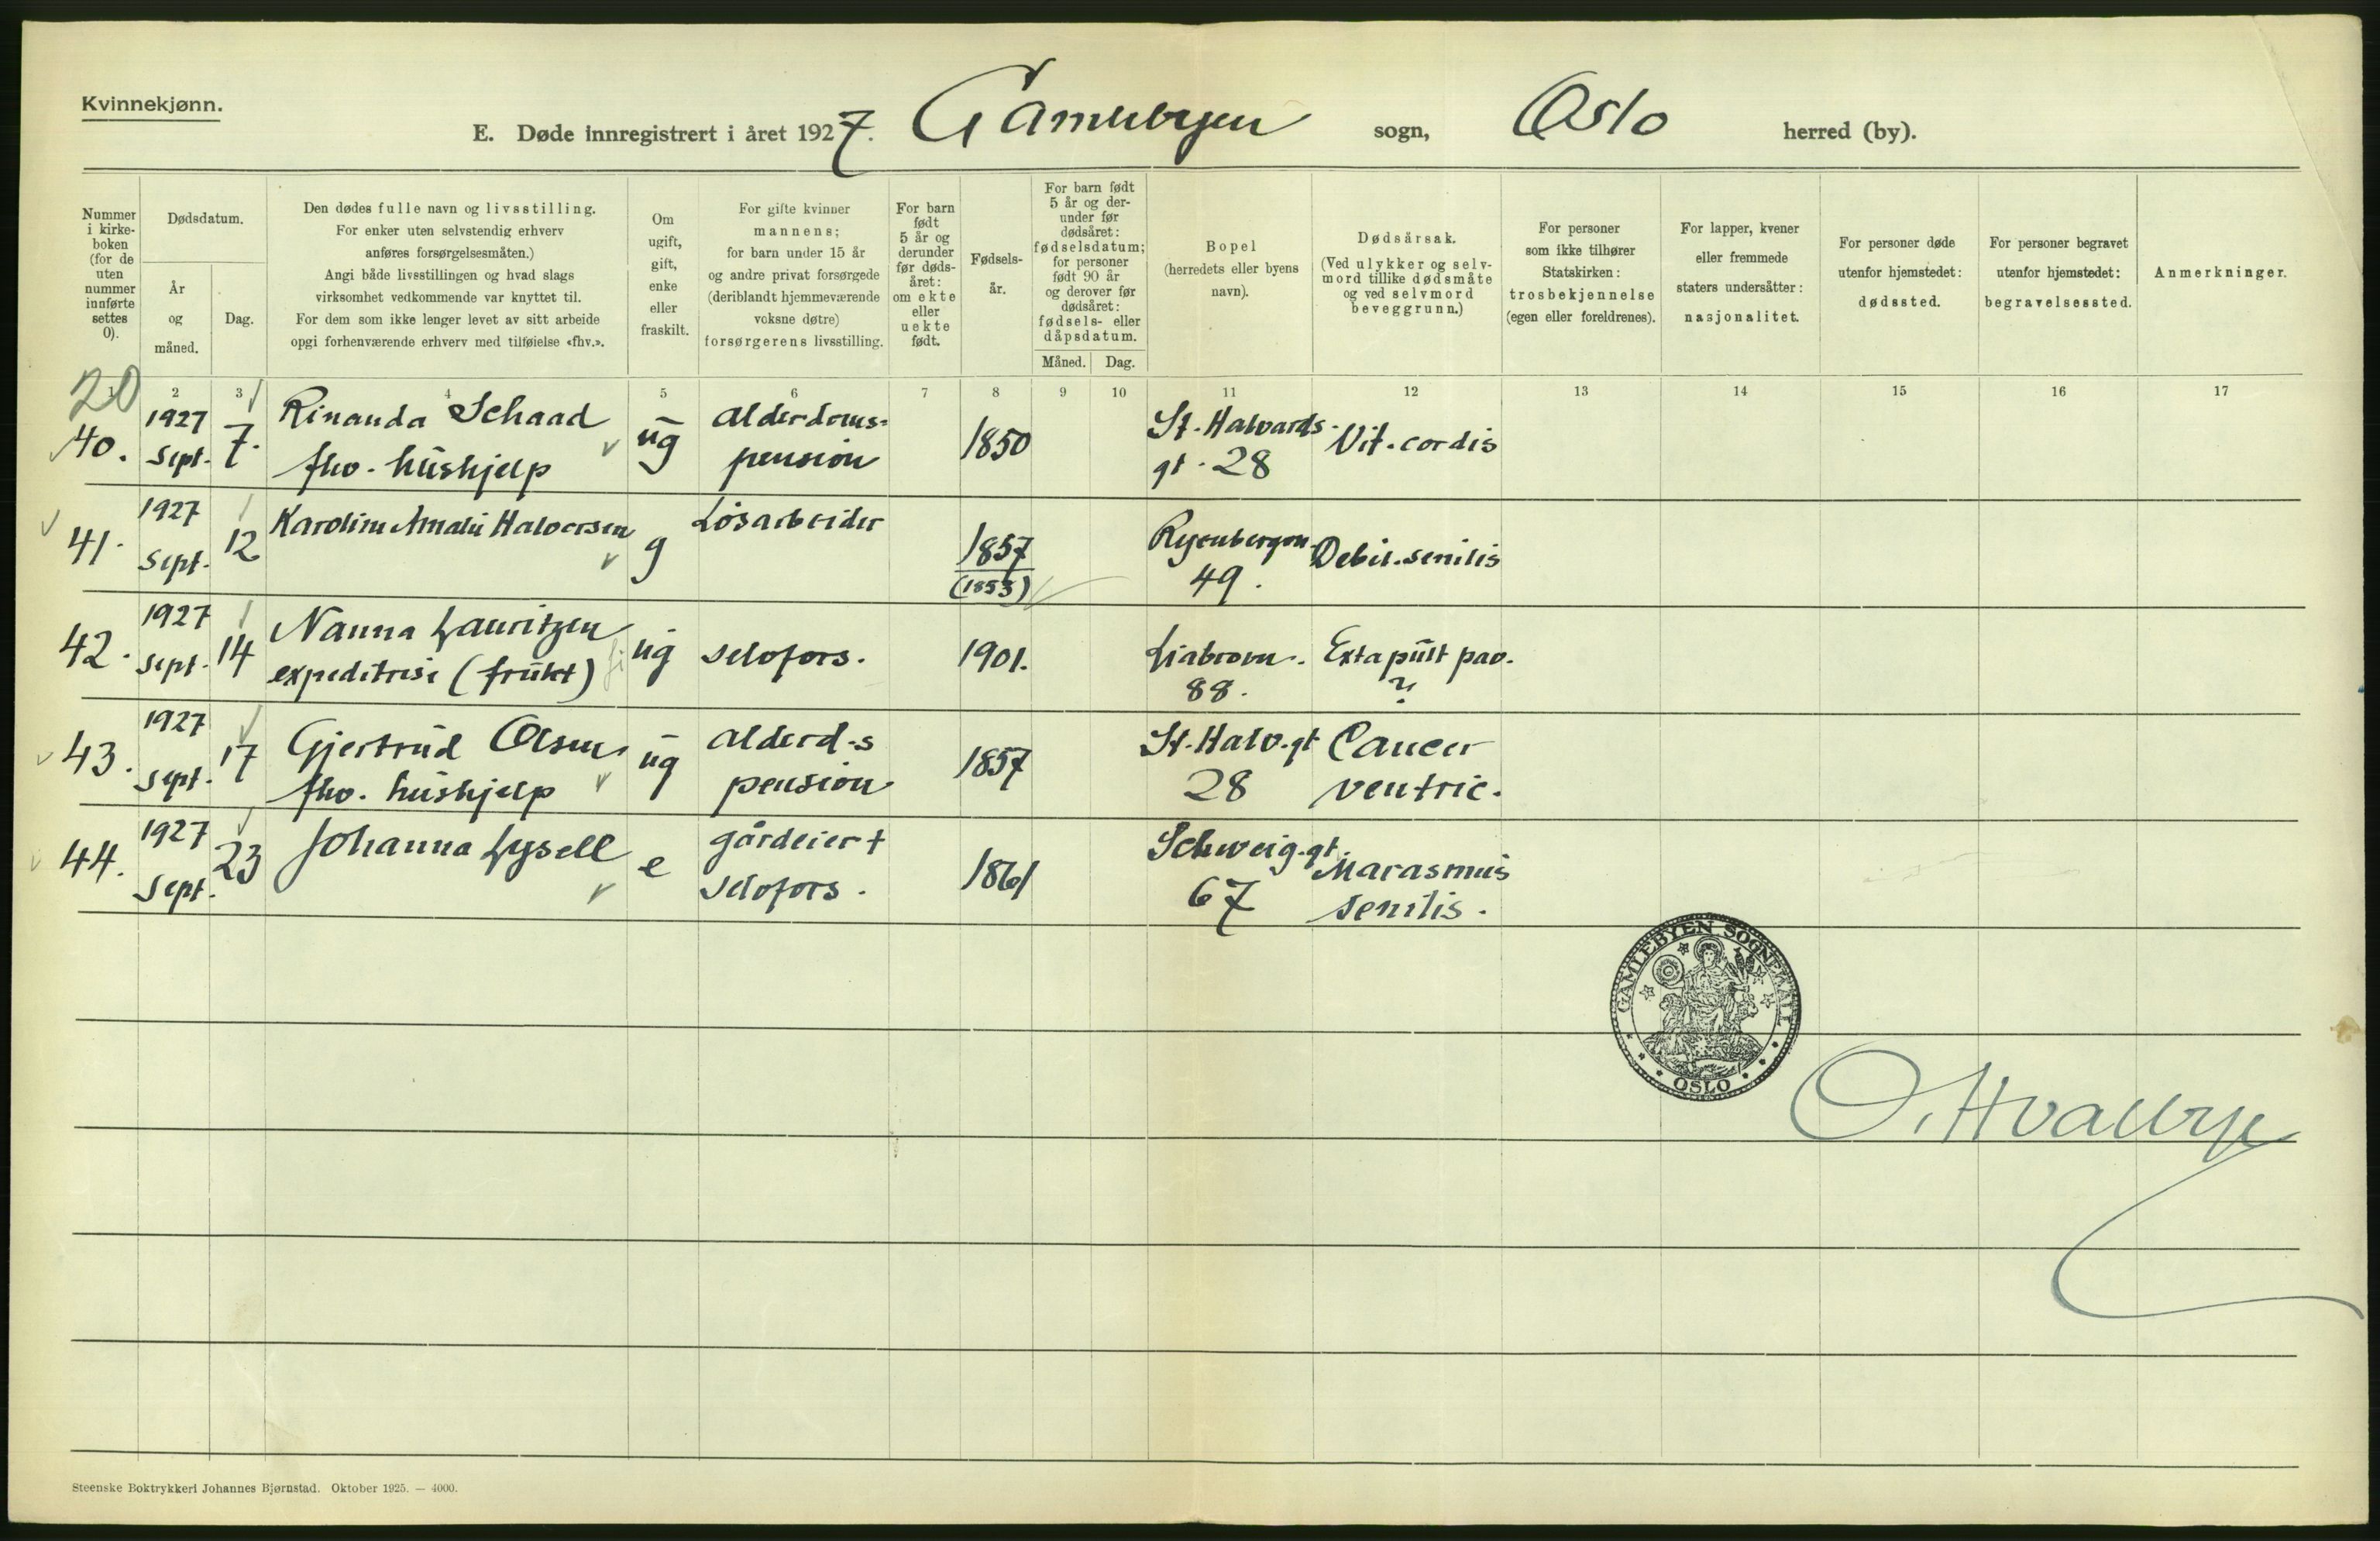 Kvinnekjønn.
E. Døde innregistrert i året 1927. Gamlebyen sogn, Oslo herred (by).
Nummer i kirke-boken (for de uten nummer innførte settes 0).
Dødsdatum.
År og måned.
Dag.
Den dødes fulle navn og livsstilling.
For enker uten selvstendig erhverv
anføres forsørgelsesmåten.)
Angi både livsstillingen og hvad slags
virksomhet vedkommende var knyttet til.
For dem som ikke lenger levet av sitt arbeide
opgi forhenværende erhverv med tilføielse «fhv.».
Om
ugift,
gift,
enke
eller
fraskilt.
For gifte kvinner
mannens;
for barn under 15 år
og andre privat forsørgede
(deriblandt hjemmeværende
voksne døtre)
forsørgerens livsstilling.
For barn
født
5 år og
derunder
før døds-
året:
om ekte
eller
uekte
født.
Fødsels-
år.
For barn født
5 år og der-
under før
dødsåret:
fødselsdatum;
for personer
født 90 år
og derover før
dødsåret:
fødsels- eller
dåpsdatum.
Måned. Dag.
Bopel
(herredets eller byens
navn).
Dødsårsak.
(Ved ulykker og selv-
mord tillike dødsmåte
og ved selvmord
beveggrunn.)
For personer
som ikke tilhører
Statskirken:
trosbekjennelse
(egen eller foreldrenes).
For lapper, kvener
eller fremmede
staters undersåtter:
nasjonalitet.
For personer døde
utenfor hjemstedet:
dødssted.
For personer begravet
utenfor hjemstedet:
begravelsessted.
Anmerkninger.
20
1 2 3 4 5 6 7 8 9 10 11 12 13 14 15 16 17
40. 1927 Sept. 7. Rinanda Schaad ug Alderdoms- 1850 St. Halvards- Vit. cordis
fhv. hushjelp pension gt. 28
41. 1927 Sept. 12 Karoline Amalie Halvorsen g Løsarbeider 1857 Ryenbergvn. Debil. senilis
(1853) 49.
42. 1927 Sept. 14 Nanna Lauritzen ug selvfors. 1901. Liabrovn. Extapult pav.
expeditrise (frukt) 88. ?
43. 1927 Sept. 17 Gjertrud Olsen ug Alderd.s 1857 St. Halv. gt Cancer
fhv. hushjelp pension 28 ventric.
44. 1927 Sept. 23 Johanna Lysell e gårdeier + 1861 Schweig. gt. Marasmus
selvfors. 67 senilis.
GAMLEBYEN SOGNEKALL
OSLO
O. Hvalbye
Steenske Boktrykkeri Johannes Bjørnstad. Oktober 1925. — 4000.